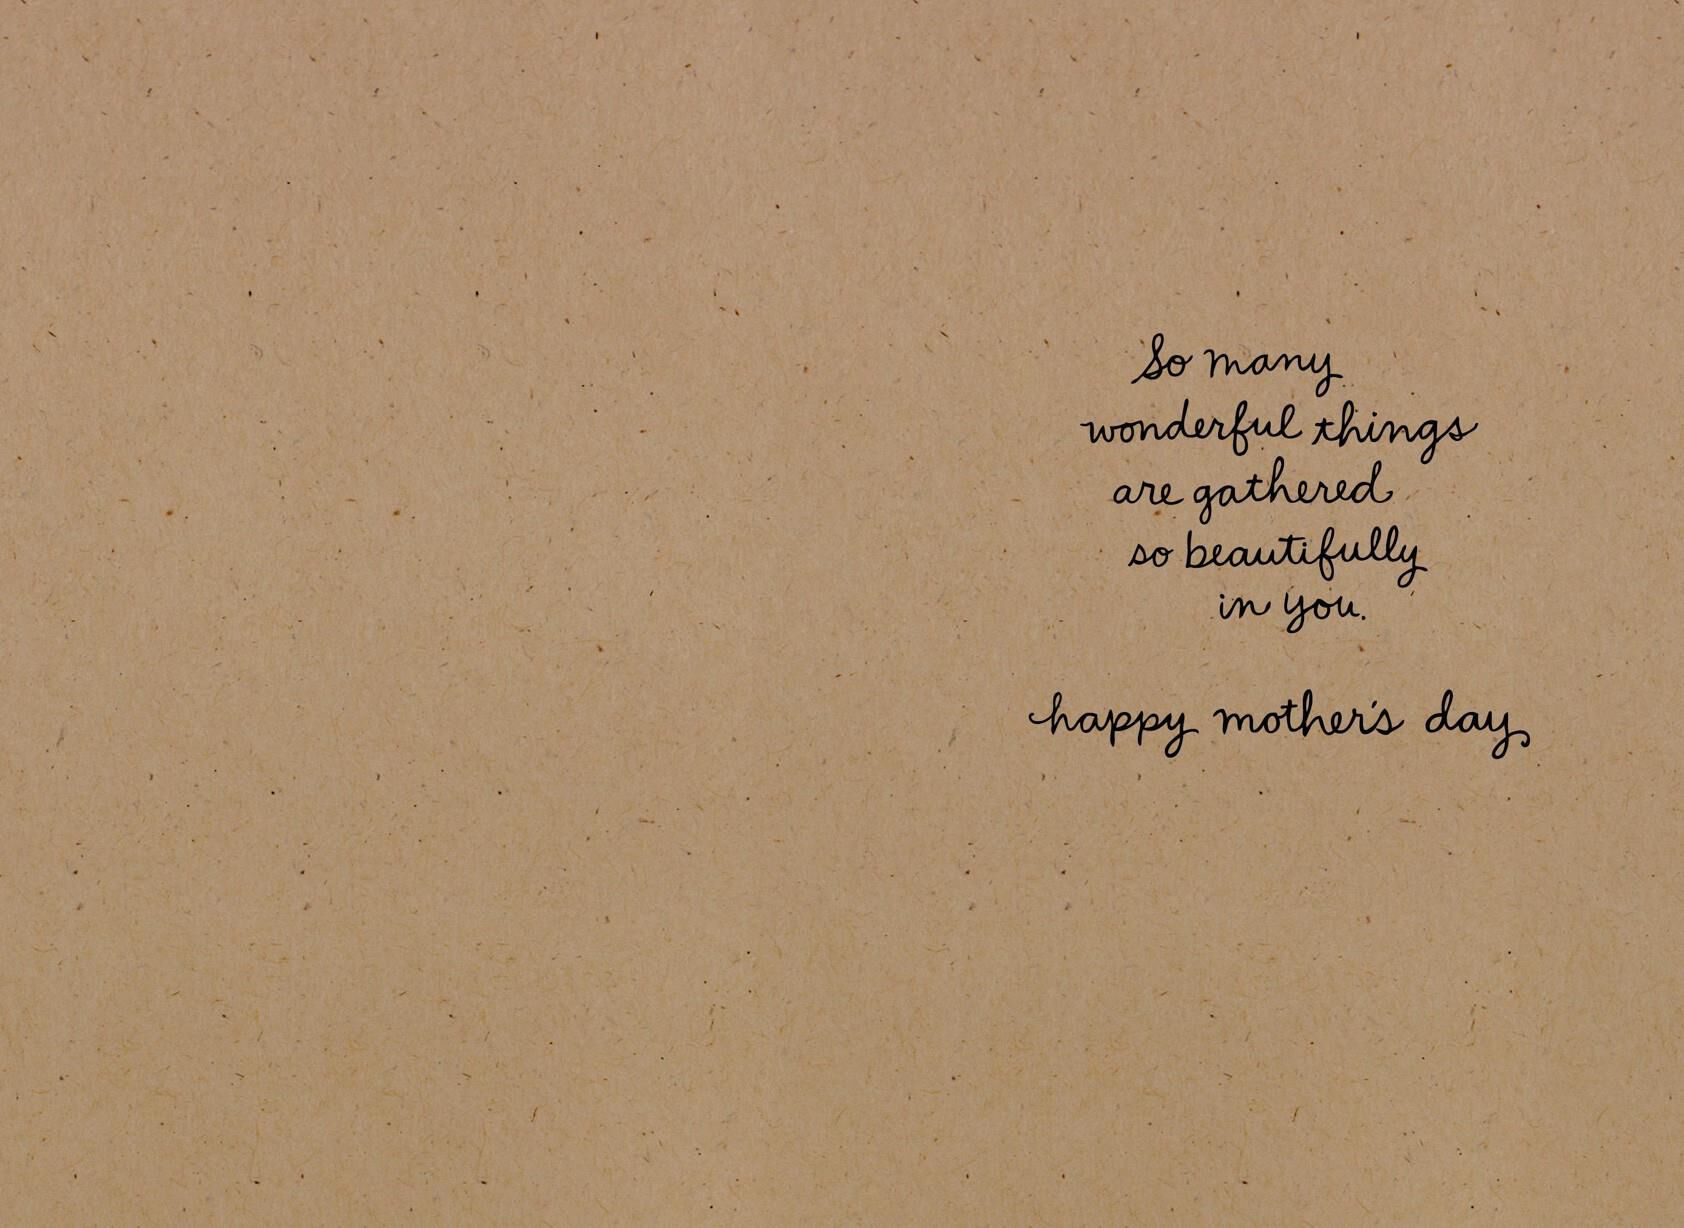 So many
wonderful things
are gathered
so beautifully
in you.
happy mother's day